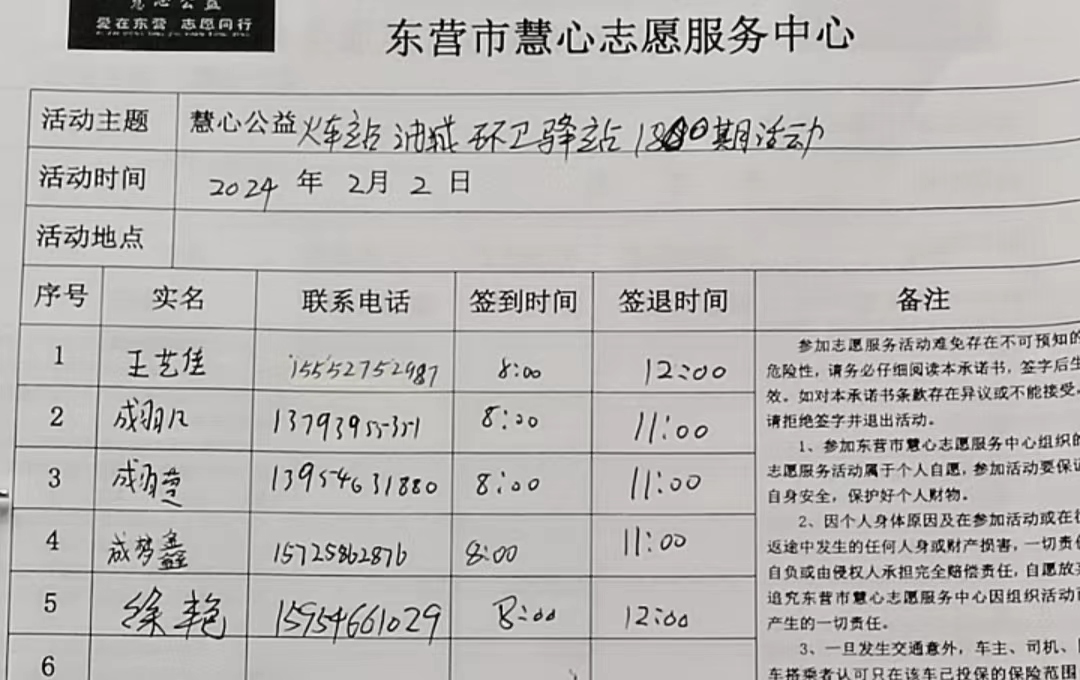 慧心公益
爱在东营 志愿同行
东营市慧心志愿服务中心
活动主题 慧心公益火车站油城环卫驿站1300期活动
活动时间 2024年2月2日
活动地点
序号 实名 联系电话 签到时间 签退时间 备注
1 王艺佳 15552752987 8:00 12:00
2 成羽凡 13793955351 8:00 11:00
3 成羽楚 13954631880 8:00 11:00
4 成梦鑫 15725862876 8:00 11:00
5 徐艳 15954661029 8:00 12:00
6
参加志愿服务活动难免存在不可预知的
危险性,请务必仔细阅读本承诺书,签字后生
效。如对本承诺书条款存在异议或不能接受,
请拒绝签字并退出活动。
1、参加东营市慧心志愿服务中心组织的
志愿服务活动属于个人自愿,参加活动要保证
自身安全,保护好个人财物。
2、因个人身体原因及在参加活动或在往
返途中发生的任何人身或财产损害,一切责任
自负或由侵权人承担完全赔偿责任,自愿放弃
追究东营市慧心志愿服务中心因组织活动可
产生的一切责任。
3、一旦发生交通意外,车主、司机、
车搭乘者认可只在该车已投保的保险范围